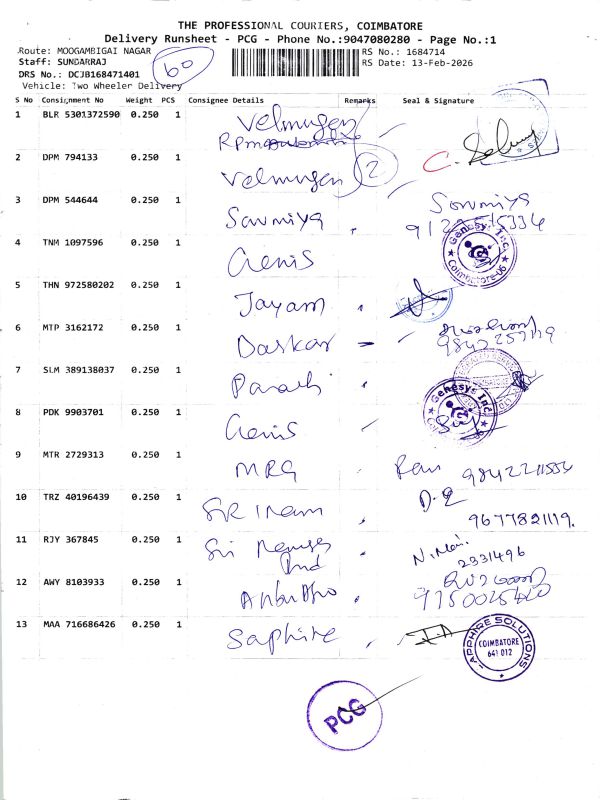 THE PROFESSIONAL COURIERS, COIMBATORE
Delivery Runsheet - PCG - Phone No.:9047080280 - Page No.:1
Route: MOOGAMBIGAI NAGAR
RS No.: 1684714
Staff: SUNDARRAJ
60
RS Date: 13-Feb-2026
DRS No.: DCJB168471401
Vehicle: Two Wheeler Delivery
S No Consignment No Weight PCS Consignee Details Remarks Seal & Signature
1 BLR 5301372590 0.250 1 Velmugen
2 DPM 794133 0.250 1 Velmugen 2
3 DPM 544644 0.250 1 Sowmiya Sowmiya
4 TNM 1097596 0.250 1 Genis
Genesys Inc
Coimbatore-06
5 THN 972580202 0.250 1 Jayam
6 MTP 3162172 0.250 1 Baskar
7 SLM 389138037 0.250 1
8 PDK 9903701 0.250 1 Genis
Genesys Inc
9 MTR 2729313 0.250 1 MRG
10 TRZ 40196439 0.250 1
9677821119.
11 RJY 367845 0.250 1 Sri
2331496
12 AWY 8103933 0.250 1
13 MAA 716686426 0.250 1 Saphire
SAPPHIRE SOLUTIONS
COIMBATORE
641 012
PCG